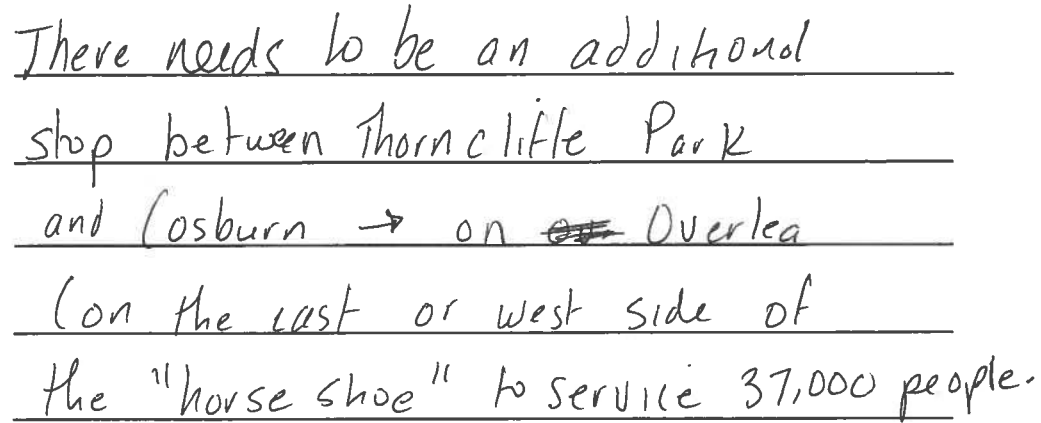 There needs to be an additional
stop between Thorncliffe Park
and Cosburn → on Overlea
(on the east or west side of
the "horse shoe" to service 37,000 people.